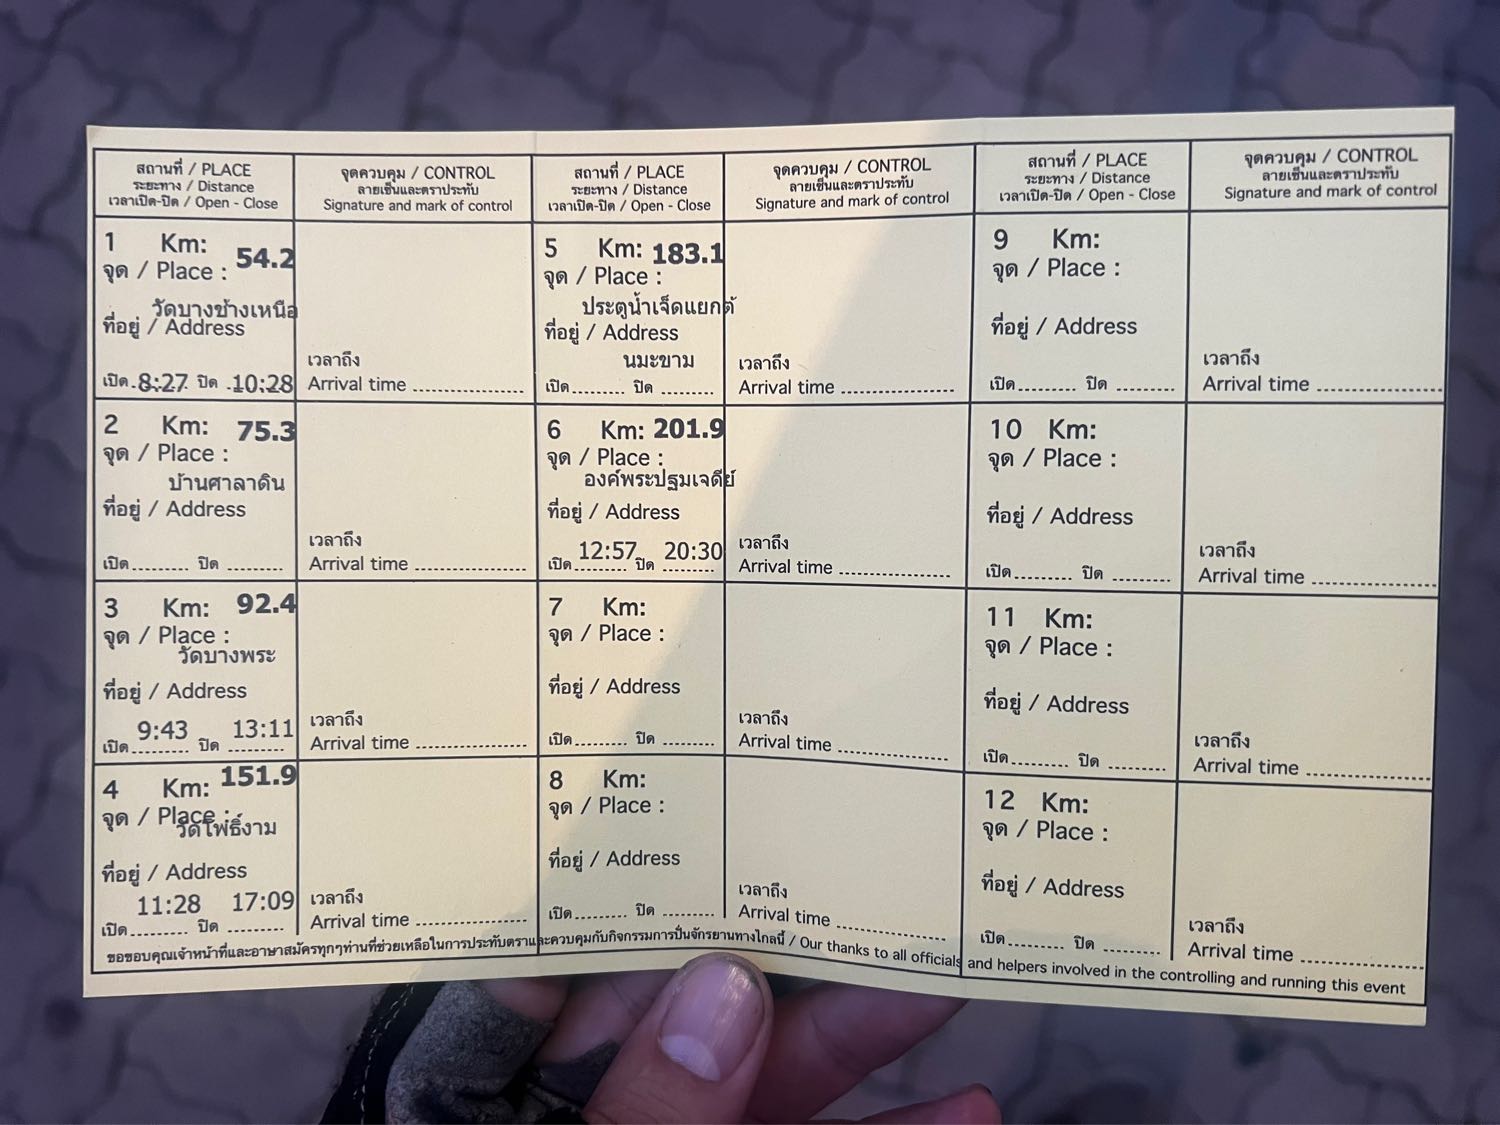 สถานที่ / PLACE
ระยะทาง / Distance
เวลาเปิด-ปิด / Open - Close
จุดควบคุม / CONTROL
ลายเซ็นและตราประทับ
Signature and mark of control
1 Km: 54.2
จุด / Place :
วัดบางช้างเหนือ
ที่อยู่ / Address
เปิด 8:27 ปิด 10:28
เวลาถึง
Arrival time
2 Km: 75.3
จุด / Place :
บ้านศาลาดิน
ที่อยู่ / Address
เปิด ปิด
เวลาถึง
Arrival time
3 Km: 92.4
จุด / Place :
วัดบางพระ
ที่อยู่ / Address
เปิด 9:43 ปิด 13:11
เวลาถึง
Arrival time
4 Km: 151.9
จุด / Place :
วัดโพธิ์งาม
ที่อยู่ / Address
เปิด 11:28 ปิด 17:09
เวลาถึง
Arrival time
สถานที่ / PLACE
ระยะทาง / Distance
เวลาเปิด-ปิด / Open - Close
จุดควบคุม / CONTROL
ลายเซ็นและตราประทับ
Signature and mark of control
5 Km: 183.1
จุด / Place :
ประตูน้ำเจ็ดแยกต้
ที่อยู่ / Address
นมะขาม
เปิด ปิด
เวลาถึง
Arrival time
6 Km: 201.9
จุด / Place :
องค์พระปฐมเจดีย์
ที่อยู่ / Address
เปิด 12:57 ปิด 20:30
เวลาถึง
Arrival time
7 Km:
จุด / Place :
ที่อยู่ / Address
เปิด ปิด
เวลาถึง
Arrival time
8 Km:
จุด / Place :
ที่อยู่ / Address
เปิด ปิด
เวลาถึง
Arrival time
สถานที่ / PLACE
ระยะทาง / Distance
เวลาเปิด-ปิด / Open - Close
จุดควบคุม / CONTROL
ลายเซ็นและตราประทับ
Signature and mark of control
9 Km:
จุด / Place :
ที่อยู่ / Address
เปิด ปิด
เวลาถึง
Arrival time
10 Km:
จุด / Place :
ที่อยู่ / Address
เปิด ปิด
เวลาถึง
Arrival time
11 Km:
จุด / Place :
ที่อยู่ / Address
เปิด ปิด
เวลาถึง
Arrival time
12 Km:
จุด / Place :
ที่อยู่ / Address
เปิด ปิด
เวลาถึง
Arrival time
ขอขอบคุณเจ้าหน้าที่และอาษาสมัครทุกๆท่านที่ช่วยเหลือในการประทับตราและควบคุมกับกิจกรรมการปั่นจักรยานทางไกลนี้ / Our thanks to all officials and helpers involved in the controlling and running this event